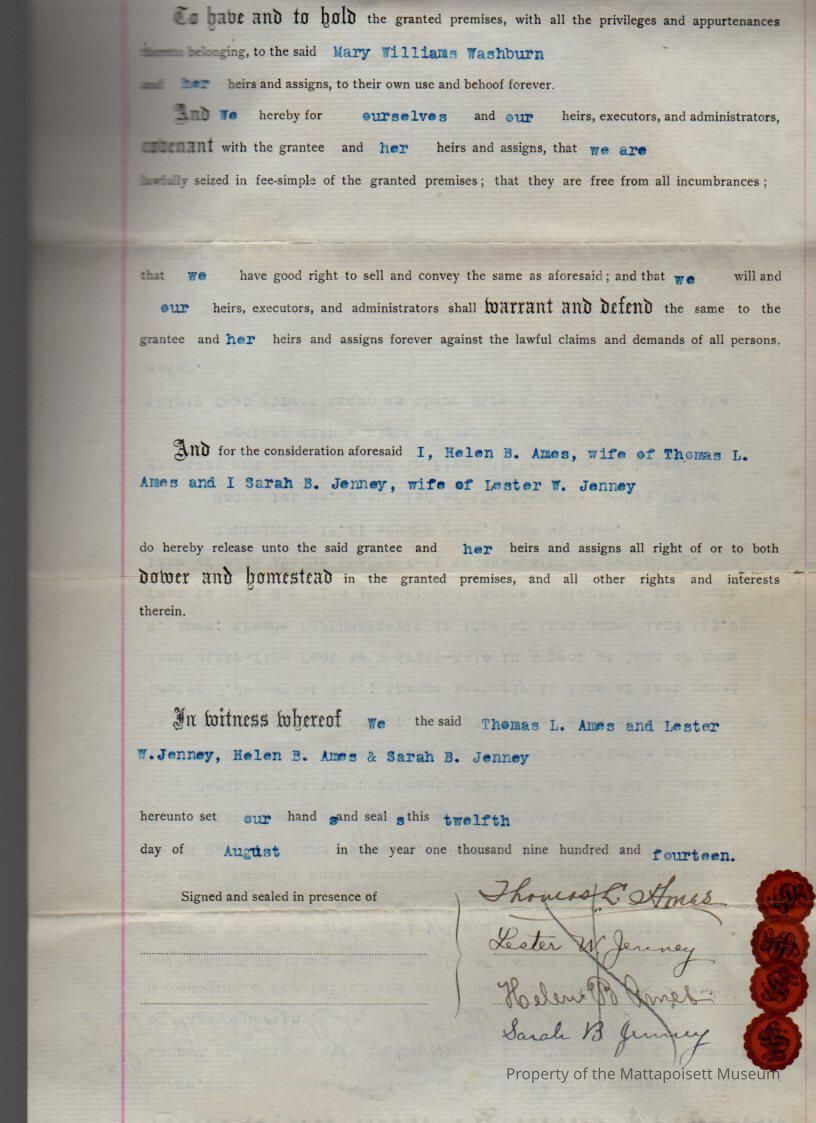 To have and to hold the granted premises, with all the privileges and appurtenances
thereto belonging, to the said Mary Williams Washburn
and her heirs and assigns, to their own use and behoof forever.
And We hereby for ourselves and our heirs, executors, and administrators,
covenant with the grantee and her heirs and assigns, that we are
lawfully seized in fee-simple of the granted premises; that they are free from all incumbrances;
that we have good right to sell and convey the same as aforesaid; and that we will and
our heirs, executors, and administrators shall warrant and defend the same to the
grantee and her heirs and assigns forever against the lawful claims and demands of all persons.
And for the consideration aforesaid I, Helen B. Ames, wife of Thomas L.
Ames and I Sarah B. Jenney, wife of Lester W. Jenney
do hereby release unto the said grantee and her heirs and assigns all right of or to both
dower and homestead in the granted premises, and all other rights and interests
therein.
In witness whereof We the said Thomas L. Ames and Lester
W.Jenney, Helen B. Ames & Sarah B. Jenney
hereunto set our hand sand seal s this twelfth
day of August in the year one thousand nine hundred and fourteen.
Signed and sealed in presence of
Thomas L. Ames
Lester W. Jenney
Helen B Ames
Sarah B Jenney
Property of the Mattapoisett Museum